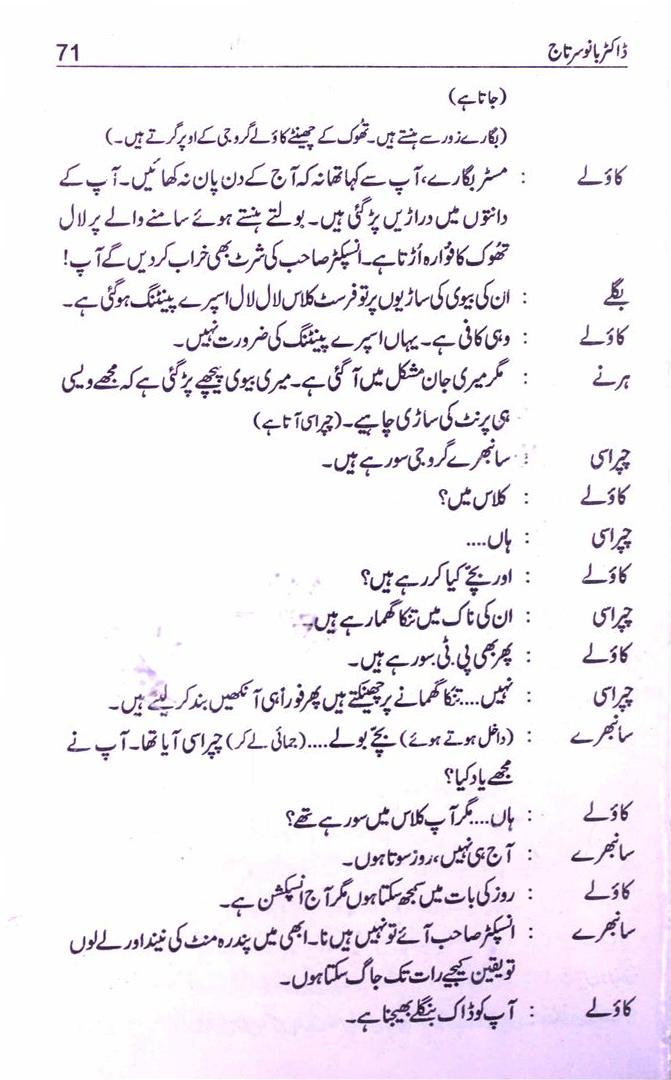 ڈاکٹر بانو سرتاج 71
(جاتا ہے)
(بگارے زور سے ہنستے ہیں۔ تھوک کے چھینٹے کاؤلے گروجی کے اوپر گرتے ہیں۔)
کاؤلے : مسٹر بگارے، آپ سے کہا تھا نہ کہ آج کے دن پان نہ کھائیں۔ آپ کے
دانتوں میں دراڑیں پڑ گئی ہیں۔ بولتے ہنستے ہوئے سامنے والے پر لال
تھوک کا فوارہ اُڑتا ہے۔ انسپکٹر صاحب کی شرٹ بھی خراب کر دیں گے آپ!
بگلے : ان کی بیوی کی ساڑیوں پر تو فرسٹ کلاس لال لال اسپرے پینٹنگ ہو گئی ہے۔
کاؤلے : وہی کافی ہے۔ یہاں اسپرے پینٹنگ کی ضرورت نہیں۔
ہرنے : مگر میری جان مشکل میں آ گئی ہے۔ میری بیوی پیچھے پڑ گئی ہے کہ مجھے ویسی
ہی پرنٹ کی ساڑی چاہیے۔ (چپراسی آتا ہے)
چپراسی : سانبھرے گروجی سو رہے ہیں۔
کاؤلے : کلاس میں؟
چپراسی : ہاں....
کاؤلے : اور بچّے کیا کر رہے ہیں؟
چپراسی : ان کی ناک میں تنکا گھما رہے ہیں۔
کاؤلے : پھر بھی پی.ٹی. سو رہے ہیں۔
چپراسی : نہیں.... تنکا گھمانے پر چھینکتے ہیں پھر فوراً ہی آنکھیں بند کر لیتے ہیں۔
سانبھرے : (داخل ہوتے ہوئے) بچّے بولے.... (جمائی لے کر) چپراسی آیا تھا۔ آپ نے
مجھے یاد کیا؟
کاؤلے : ہاں.... مگر آپ کلاس میں سو رہے تھے؟
سانبھرے : آج ہی نہیں، روز سوتا ہوں۔
کاؤلے : روز کی بات میں سمجھ سکتا ہوں مگر آج انسپکشن ہے۔
سانبھرے : انسپکٹر صاحب آئے تو نہیں ہیں نا۔ ابھی میں پندرہ منٹ کی نیند اور لے لوں
تو یقین کیجیے رات تک جاگ سکتا ہوں۔
کاؤلے : آپ کو ڈاک بنگلے بھیجنا ہے۔